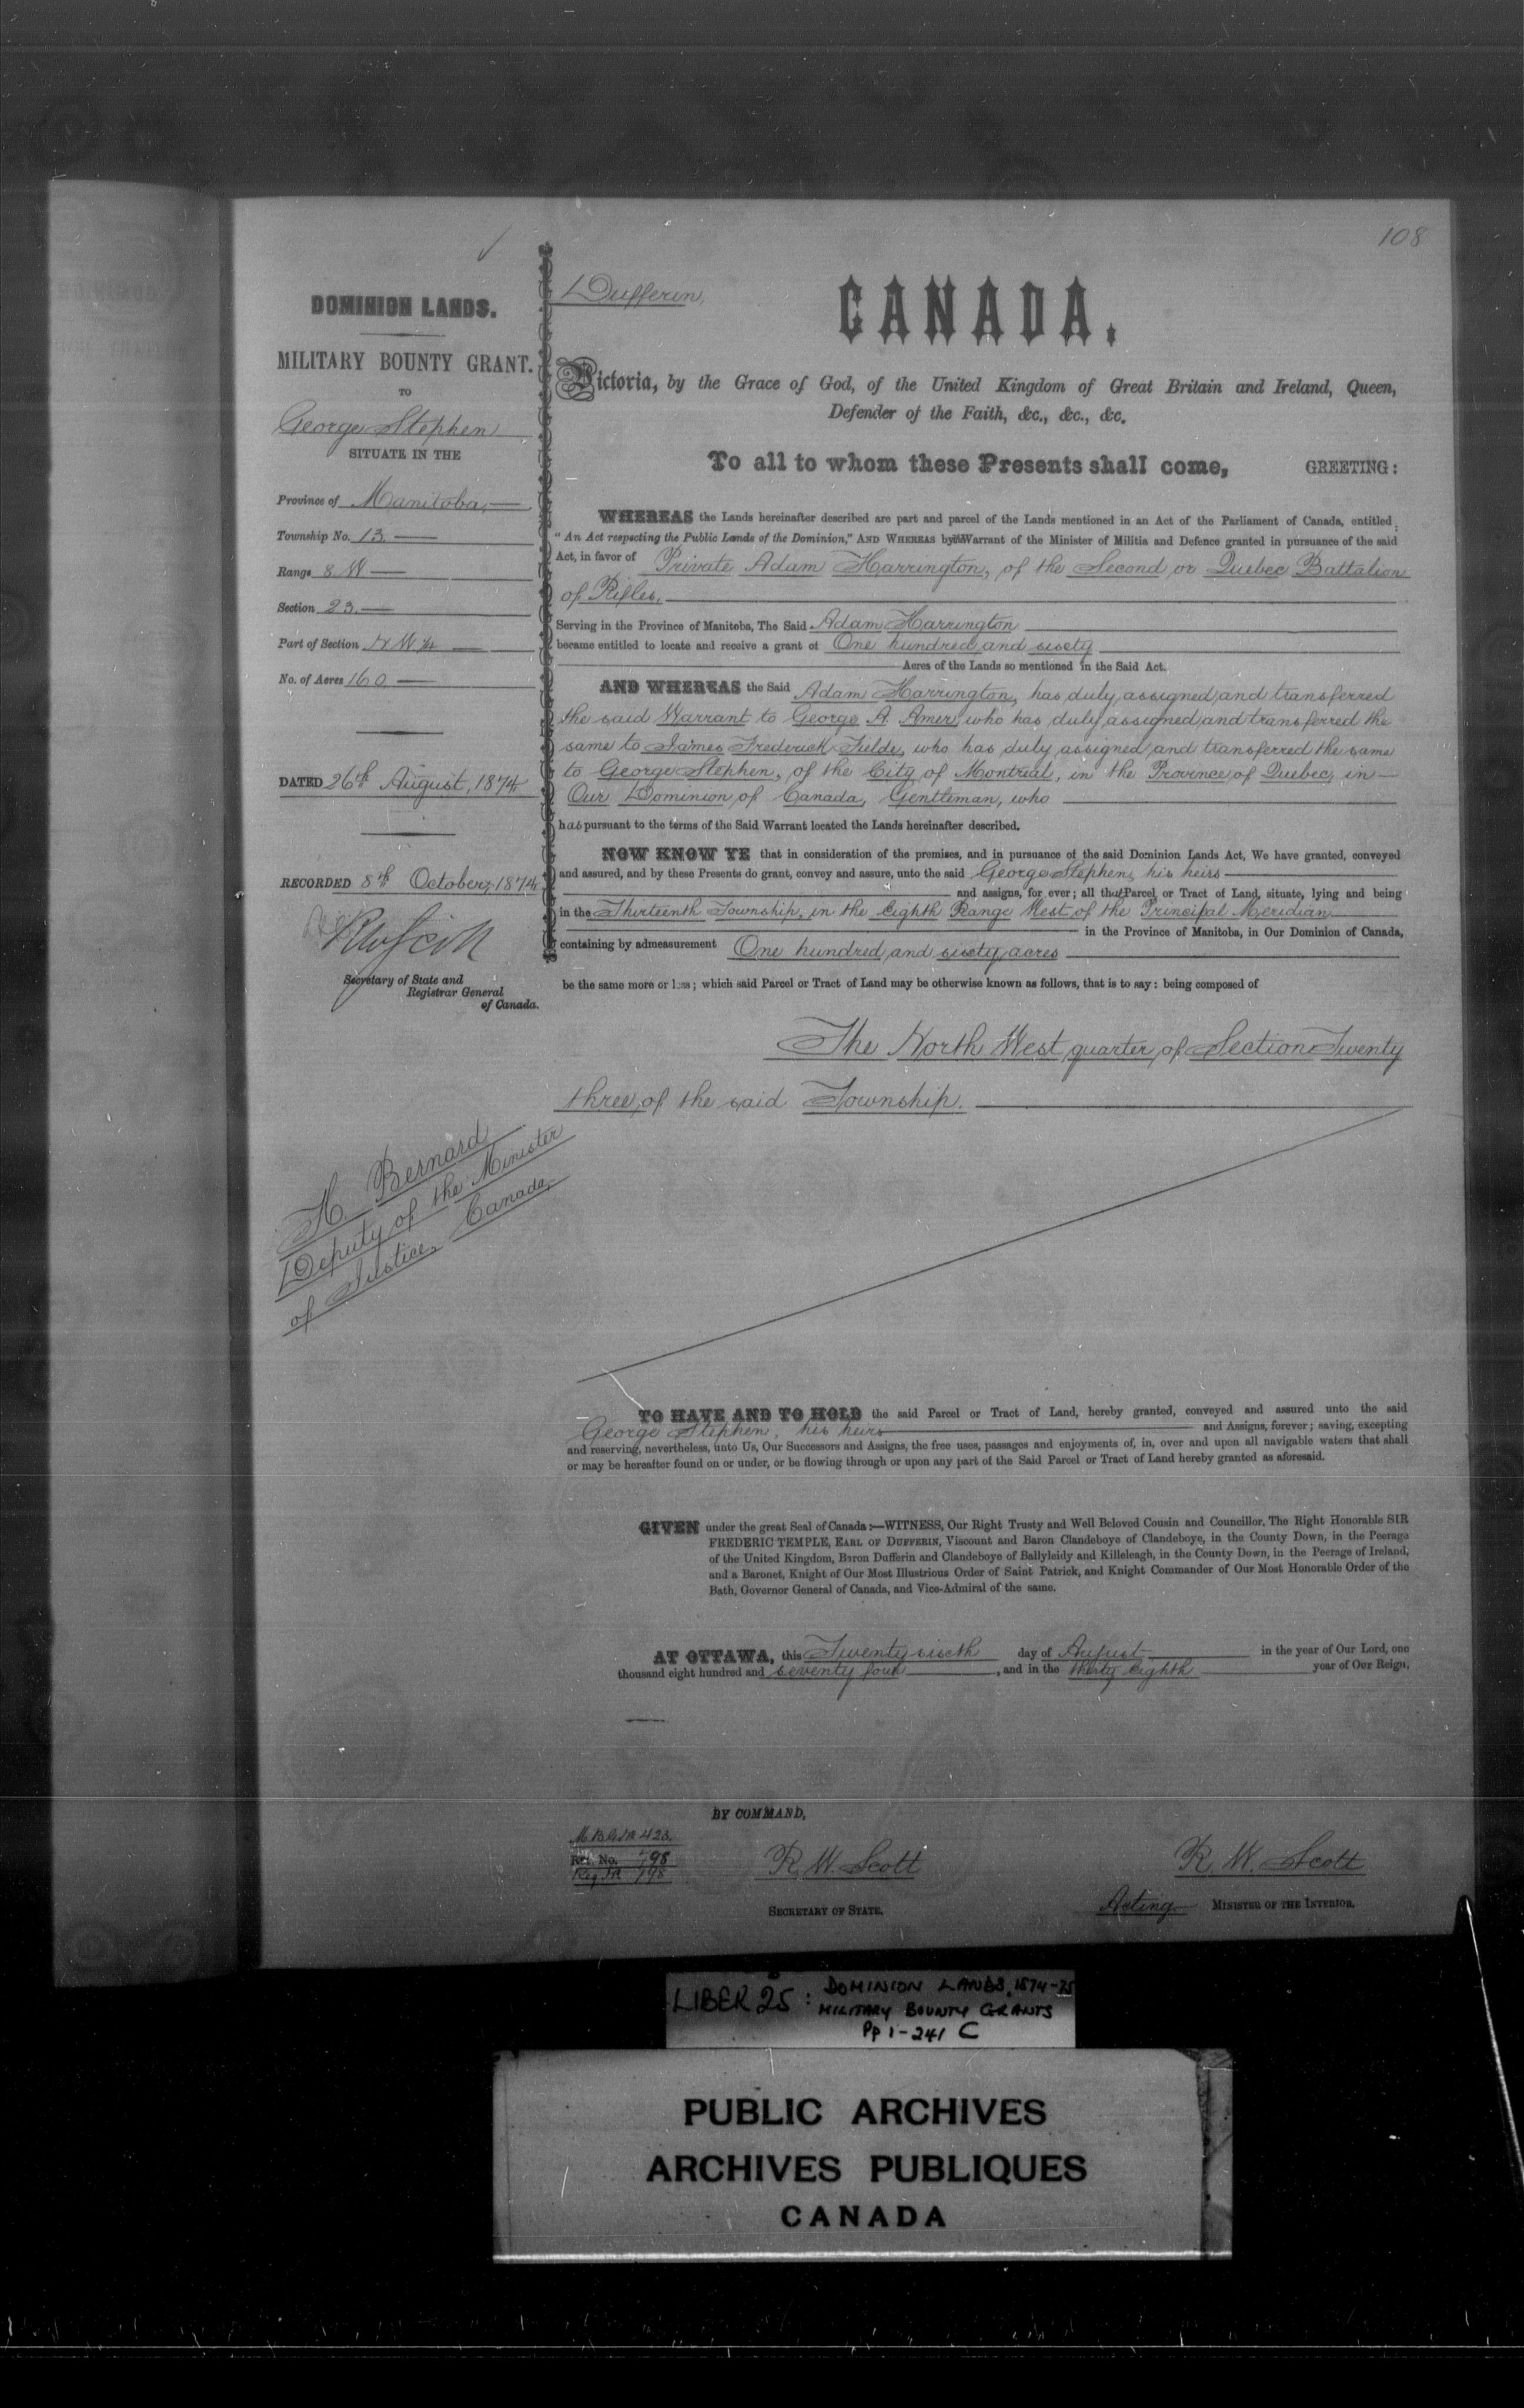 108
DOMINION LANDS.
MILITARY BOUNTY GRANT.
TO
George Stephen
SITUATE IN THE
Province of Manitoba,
Township No. 13.
Range 8 W
Section 23.
Part of Section N W ¼
No. of Acres 160
DATED 26th August, 1874
RECORDED 8th October, 1874
RW Scott
Secretary of State and
Registrar General
of Canada.
H Bernard
Deputy of the Minister
of Justice, Canada,
Dufferin,
CANADA.
Victoria, by the Grace of God, of the United Kingdom of Great Britain and Ireland, Queen,
Defender of the Faith, &c., &c., &c.
To all to whom these Presents shall come, GREETING:
WHEREAS the Lands hereinafter described are part and parcel of the Lands mentioned in an Act of the Parliament of Canada, entitled
"An Act respecting the Public Lands of the Dominion," AND WHEREAS by Warrant of the Minister of Militia and Defence granted in pursuance of the said
Act, in favor of Private Adam Harrington, of the Second or Quebec Battalion
of Rifles,
Serving in the Province of Manitoba, The Said Adam Harrington
became entitled to locate and receive a grant of One hundred and sixty
Acres of the Lands so mentioned in the Said Act.
AND WHEREAS the Said Adam Harrington, has duly assigned and transferred
the said Warrant to George A. Amer, who has duly assigned and transferred the
same to James Frederick Fielde, who has duly assigned and transferred the same
to George Stephen, of the City of Montreal, in the Province of Quebec, in
Our Dominion of Canada, Gentleman, who
has pursuant to the terms of the Said Warrant located the Lands hereinafter described.
NOW KNOW YE that in consideration of the premises, and in pursuance of the said Dominion Lands Act, We have granted, conveyed
and assured, and by these Presents do grant, convey and assure, unto the said George Stephen, his heirs
and assigns, for ever; all that Parcel or Tract of Land, situate, lying and being
in the Thirteenth Township, in the Eighth Range West of the Principal Meridian
in the Province of Manitoba, in Our Dominion of Canada,
containing by admeasurement One hundred and sixty acres
be the same more or less; which said Parcel or Tract of Land may be otherwise known as follows, that is to say: being composed of
The North West quarter of Section Twenty
three, of the said Township.
TO HAVE AND TO HOLD the said Parcel or Tract of Land, hereby granted, conveyed and assured unto the said
George Stephen, his heirs and Assigns, forever; saving, excepting
and reserving, nevertheless, unto Us, Our Successors and Assigns, the free uses, passages and enjoyments of, in, over and upon all navigable waters that shall
or may be hereafter found on or under, or be flowing through or upon any part of the Said Parcel or Tract of Land hereby granted as aforesaid.
GIVEN under the great Seal of Canada:—WITNESS, Our Right Trusty and Well Beloved Cousin and Councillor, The Right Honorable SIR
FREDERIC TEMPLE, EARL OF DUFFERIN, Viscount and Baron Clandeboye of Clandeboye, in the County Down, in the Peerage
of the United Kingdom, Baron Dufferin and Clandeboye of Ballyleidy and Killeleagh, in the County Down, in the Peerage of Ireland,
and a Baronet, Knight of Our Most Illustrious Order of Saint Patrick, and Knight Commander of Our Most Honorable Order of the
Bath, Governor General of Canada, and Vice-Admiral of the same.
AT OTTAWA, this Twenty sixth day of August in the year of Our Lord, one
thousand eight hundred and seventy four, and in the thirty eighth year of Our Reign.
BY COMMAND,
423.
Ref. No. 798
798
R. W. Scott
SECRETARY OF STATE.
R. W. Scott
Acting MINISTER OF THE INTERIOR.
LIBER 25: DOMINION LANDS, 1874-75
MILITARY BOUNTY GRANTS
Pp 1-241 C
PUBLIC ARCHIVES
ARCHIVES PUBLIQUES
CANADA